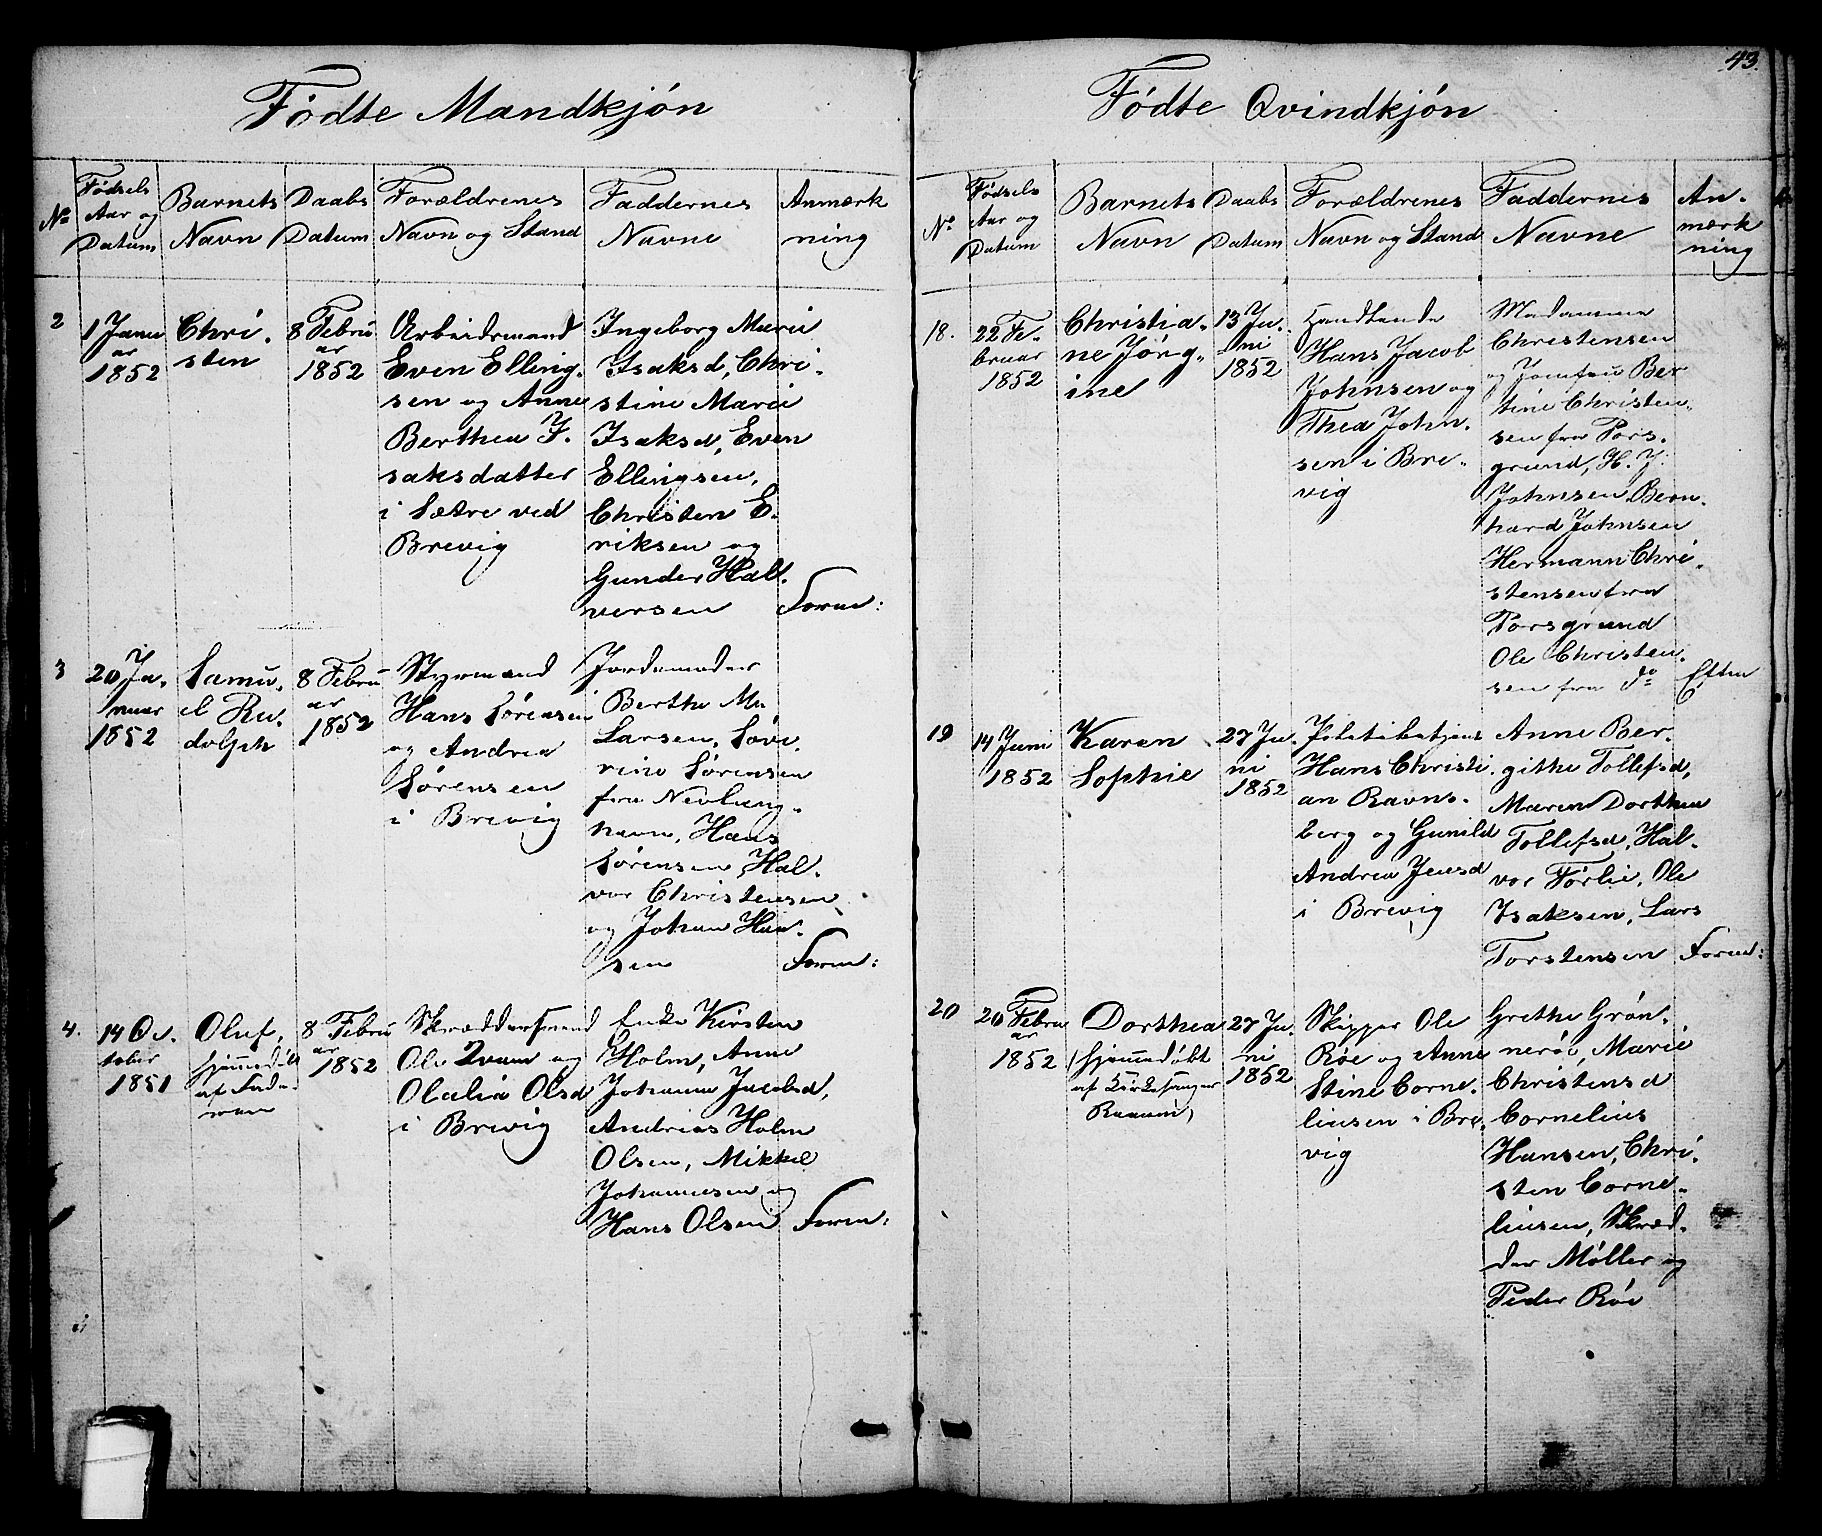 43.
Fødte Mandkjøn
No
Fødsels
Aar og
Datum
Barnets
Navn
Daabs
Datum
Forældrenes
Navn og Stand
Faddernes
Navne
Anmærk
ning
2
1 Janu
ar
1852
Chri-
sten
8 Febru
ar
1852
Arbeidsmand
Even Elling-
sen og Anne
Berthea I-
saksdatter
i Sætre ved
Brevig
Ingeborg Marie
Isaksd, Chri-
stine Marie
Isaksd, Even
Ellingsen,
Christen E-
riksen og
Gunder Hal-
versen
Form:
3
20 Ja-
nuar
1852
Samu-
el Ru-
dolph
8 Febru
ar
1852
Styrmand
Hans Sørensen
og Andrea
Sørensen
i Brevig
Jordemoder
Berthe Ma
Larsen, Seve-
rine Sørensen
fra Nevlung-
havn, Hans
Sørensen, Hal-
vor Christensen
og Johan Han-
sen
Form:
4.
14 Oc-
tober
1851
Oluf,
hjemmedøbt
af Fade-
ren
8 Febru
ar
1852
Skræddersvend
Ole Tvam og
Olalia Olsd
i Brevig
Enke Kirsten
Holm, Anne
Johanne Jacobsd,
Andrias Holm
Olsen, Mikkel
Johannesen og
Hans Olsen
Form:
Fødte Qvindkjøn
No
Fødsels
Aar og
Datum
Barnets
Navn
Daabs
Datum
Forældrenes
Navn og Stand
Faddernes
Navne
An-
mærk
ning
18.
22 Fe-
bruar
1852
Christia-
ne Jørg-
ine
13 Ju-
ni
1852
Handlende
Hans Jacob
Johnsen og
Thea John-
sen i Bre-
vig
Madamme
Christensen
og Jomfru Ber
tine Christen-
sen fra Pors-
grund, H. J.
Johnsen Bern-
hard Johnsen
Hermann Chri-
stensen fra
Porsgrund
Ole Christen-
sen fra do
Efter
19
14 Juni
1852
Karen
Sophie
27 Ju-
ni
1852
Politibetjent
Hans Christi-
an Ravns-
berg og Gunild
Andrea Jensd
i Brevig
Anne Ber-
githe Tollefsd,
Maren Dorthea
Tollefsd, Hal-
vor Førlie, Ole
Isaksen, Lars
Torstensen
Form:
20
20 Febru
ar
1852
Dorthea
(hjemmedøbt
af Kirkesanger
Raaum)
27 Ju-
ni
1852
Skipper Ole
Røe og Anne
Stine Corne-
liusen i Bre-
vig
Grethe Grøn-
nerøe, Marie
Christensd
Cornelius
Hansen, Chri-
sten Corne-
liusen, Skræd-
der Møller og
Peder Røe